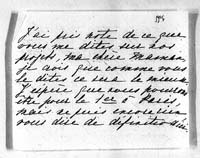 J'ai pris note de ce que
vous me dites sur nos
projets, ma chère Maman,
je crois que comme vous
le dites ce sera le mieux.
J'espère que nous pourrons
être pour le 1er à Paris,
mais je puis encore rien
vous dire de définitif